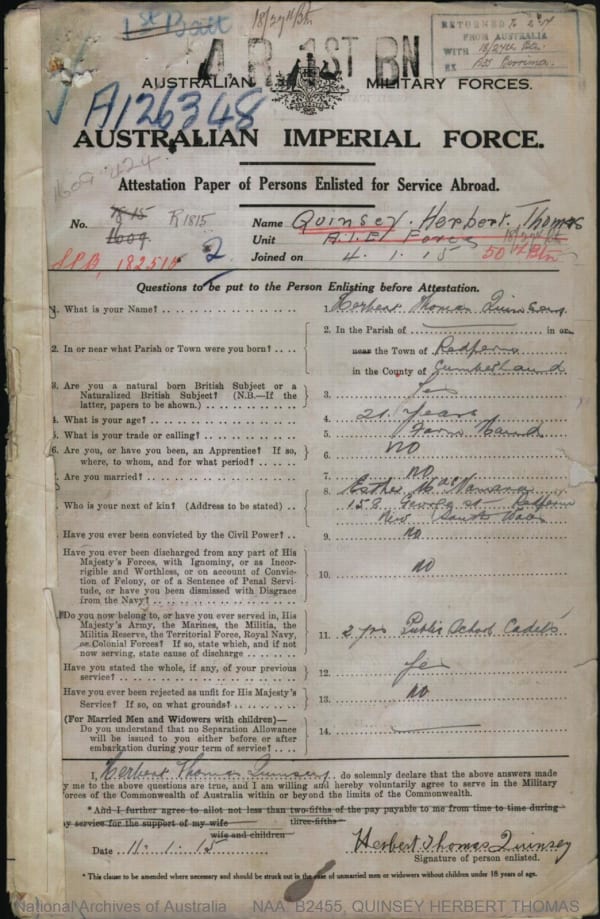 1st Batt
18/27th Btn
RETURNED TO
FROM AUSTRALIA
WITH 18/27th Btn
EX
A.R. 1ST BN
AUSTRALIAN MILITARY FORCES.
A126348
AUSTRALIAN IMPERIAL FORCE.
Attestation Paper of Persons Enlisted for Service Abroad.
No. 1815 R1815 Name Quinsey. Herbert. Thomas
1609 2 Unit A.I.E. Force
Joined on 4.1.15 50th Btn
Questions to be put to the Person Enlisting before Attestation.
1. What is your Name? .... 1. Herbert Thomas Quinsey
2. In or near what Parish or Town were you born? .... 2. In the Parish of in or
near the Town of Redfern
in the County of Cumberland
3. Are you a natural born British Subject or a
Naturalized British Subject? (N.B.—If the
latter, papers to be shown.) 3. Yes
4. What is your age? 4. 21 years
5. What is your trade or calling? 5. Farm Hand
6. Are you, or have you been, an Apprentice? If so,
where, to whom, and for what period? 6. NO
7. Are you married? 7. NO
Who is your next of kin? (Address to be stated) 8. Esther McNamara
158 George st Redfern
New South Wales
Have you ever been convicted by the Civil Power? 9. no
Have you ever been discharged from any part of His
Majesty's Forces, with Ignominy, or as Incor-
rigible and Worthless, or on account of Convic-
tion of Felony, or of a Sentence of Penal Servi-
tude, or have you been dismissed with Disgrace
from the Navy? 10. no
Do you now belong to, or have you ever served in, His
Majesty's Army, the Marines, the Militia, the
Militia Reserve, the Territorial Force, Royal Navy,
or Colonial Forces? If so, state which, and if not
now serving, state cause of discharge 11. 2 yrs Public School Cadets
Have you stated the whole, if any, of your previous
service? 12. Yes
Have you ever been rejected as unfit for His Majesty's
Service? If so, on what grounds? 13. no
(For Married Men and Widowers with children)—
Do you understand that no Separation Allowance
will be issued to you either before or after
embarkation during your term of service? 14.
I, Herbert Thomas Quinsey, do solemnly declare that the above answers made
by me to the above questions are true, and I am willing and hereby voluntarily agree to serve in the Military
Forces of the Commonwealth of Australia within or beyond the limits of the Commonwealth.
*And I further agree to allot not less than two-fifths of the pay payable to me from time to time during
three-fifths
my service for the support of my wife
wife and children
Date 11.1.15 Herbert Thomas Quinsey
Signature of person enlisted.
*This clause to be amended where necessary and should be struck out in the case of unmarried men or widowers without children under 18 years of age.
National Archives of Australia NAA: B2455, QUINSEY HERBERT THOMAS